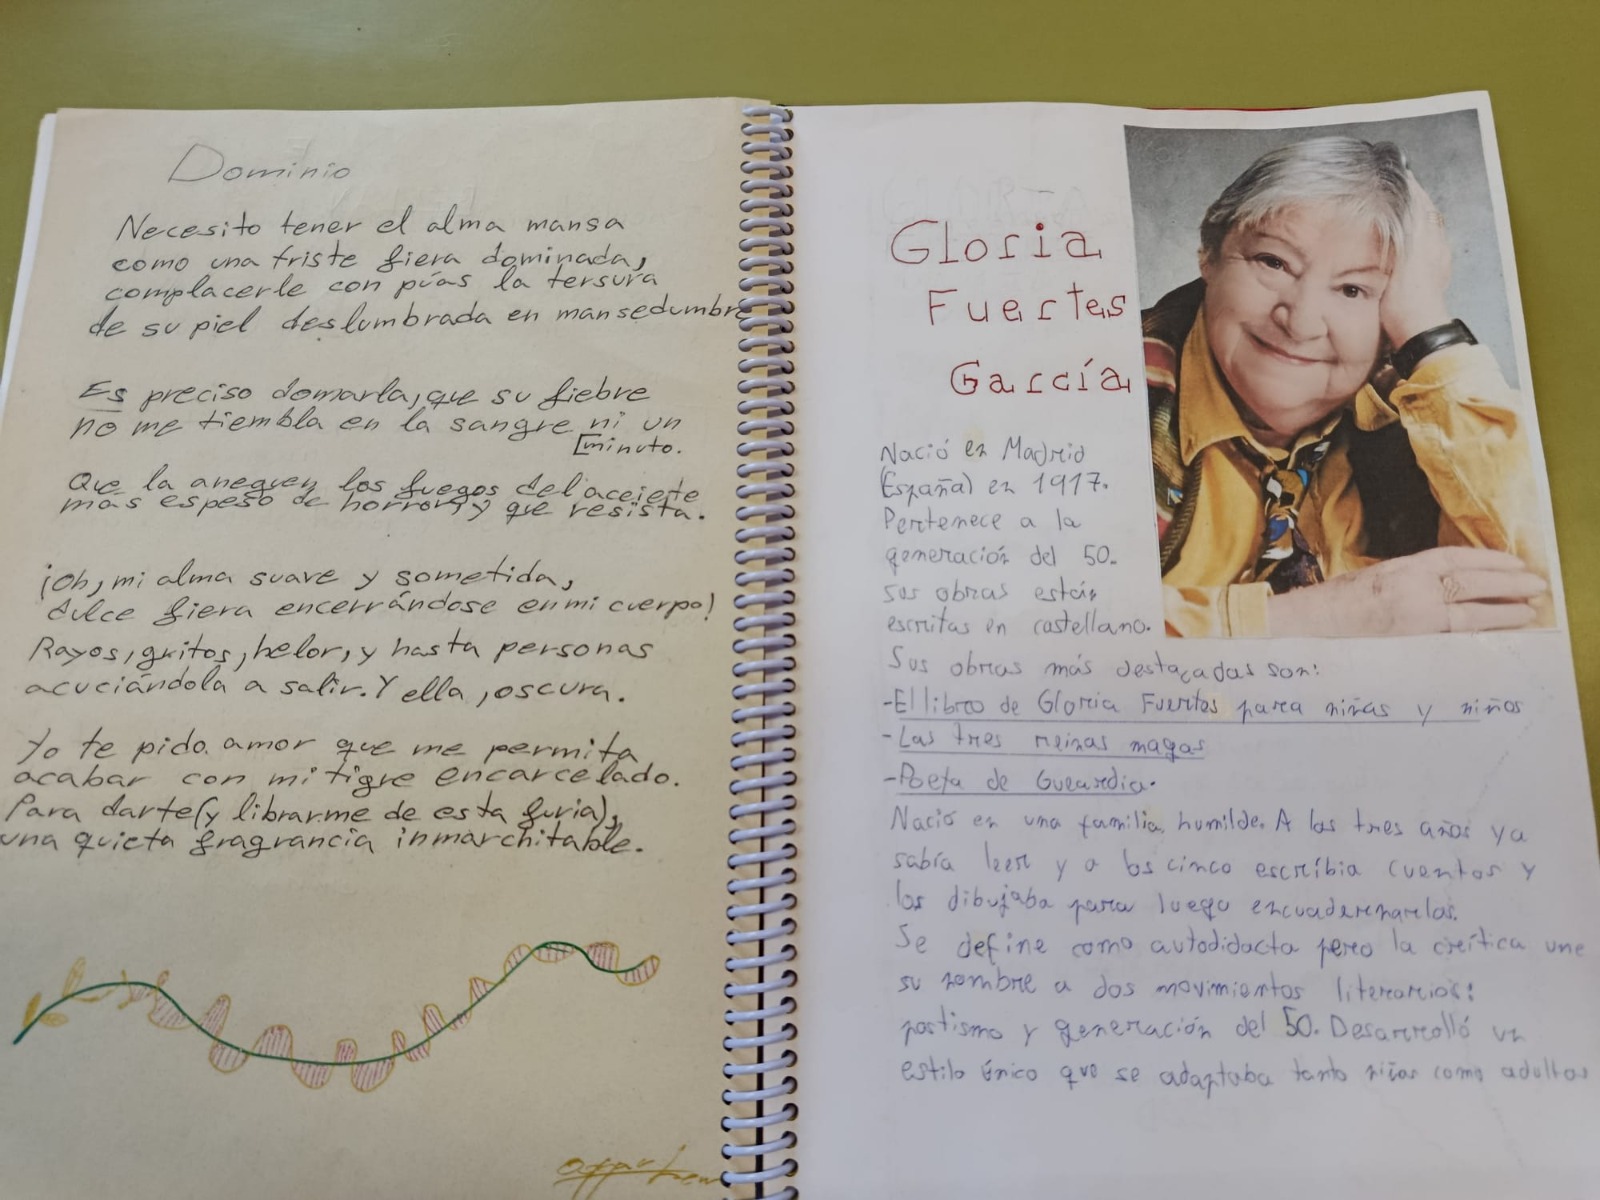 Dominio
Necesito tener el alma mansa
como una triste fiera dominada,
complacerle con púas la tersura
de su piel deslumbrada en mansedumbre
Es preciso domarla, que su fiebre
no me tiembla en la sangre ni un
[minuto.
Que la aneguen los fuegos del aceiete
más espeso de horror, y que resista.
¡Oh, mi alma suave y sometida,
dulce fiera encerrándose en mi cuerpo!
Rayos, gritos, helor, y hasta personas
acuciándola a salir. Y ella, oscura.
Yo te pido amor que me permita
acabar con mi tigre encarcelado.
Para darte (y librarme de esta furia),
una quieta fragrancia inmarchitable.
Gloria
Fuertes
García
Nació en Madrid
(España) en 1917.
Pertenece a la
generación del 50.
sus obras están
escritas en castellano.
Sus obras más destacadas son:
-El libro de Gloria Fuertes para niñas y niños
-Las tres reinas magas
-Poeta de Guardia.
Nació en una familia humilde. A los tres años ya
sabía leer y a los cinco escribia cuentos y
los dibujaba para luego encuadernarlos.
Se define como autodidacta pero la crítica une
su nombre a dos movimientos literarios:
postismo y generación del 50. Desarrolló un
estilo único que se adaptaba tanto niños como adultos